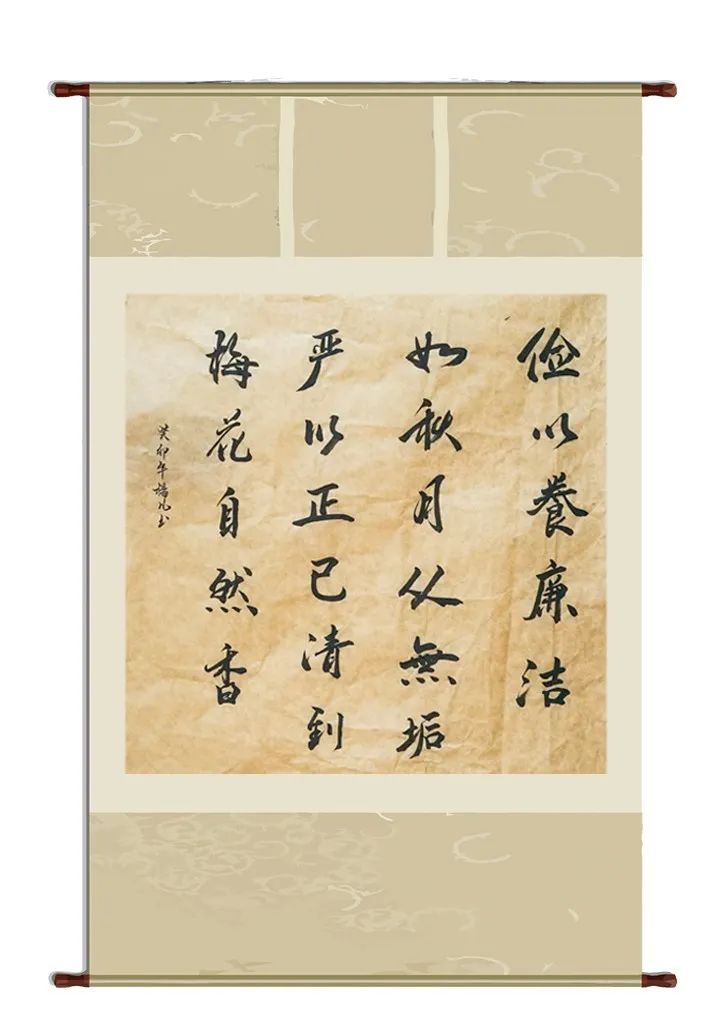 俭以養廉洁
如秋月从無垢
严以正已清到
梅花自然香
癸卯年楊凡书